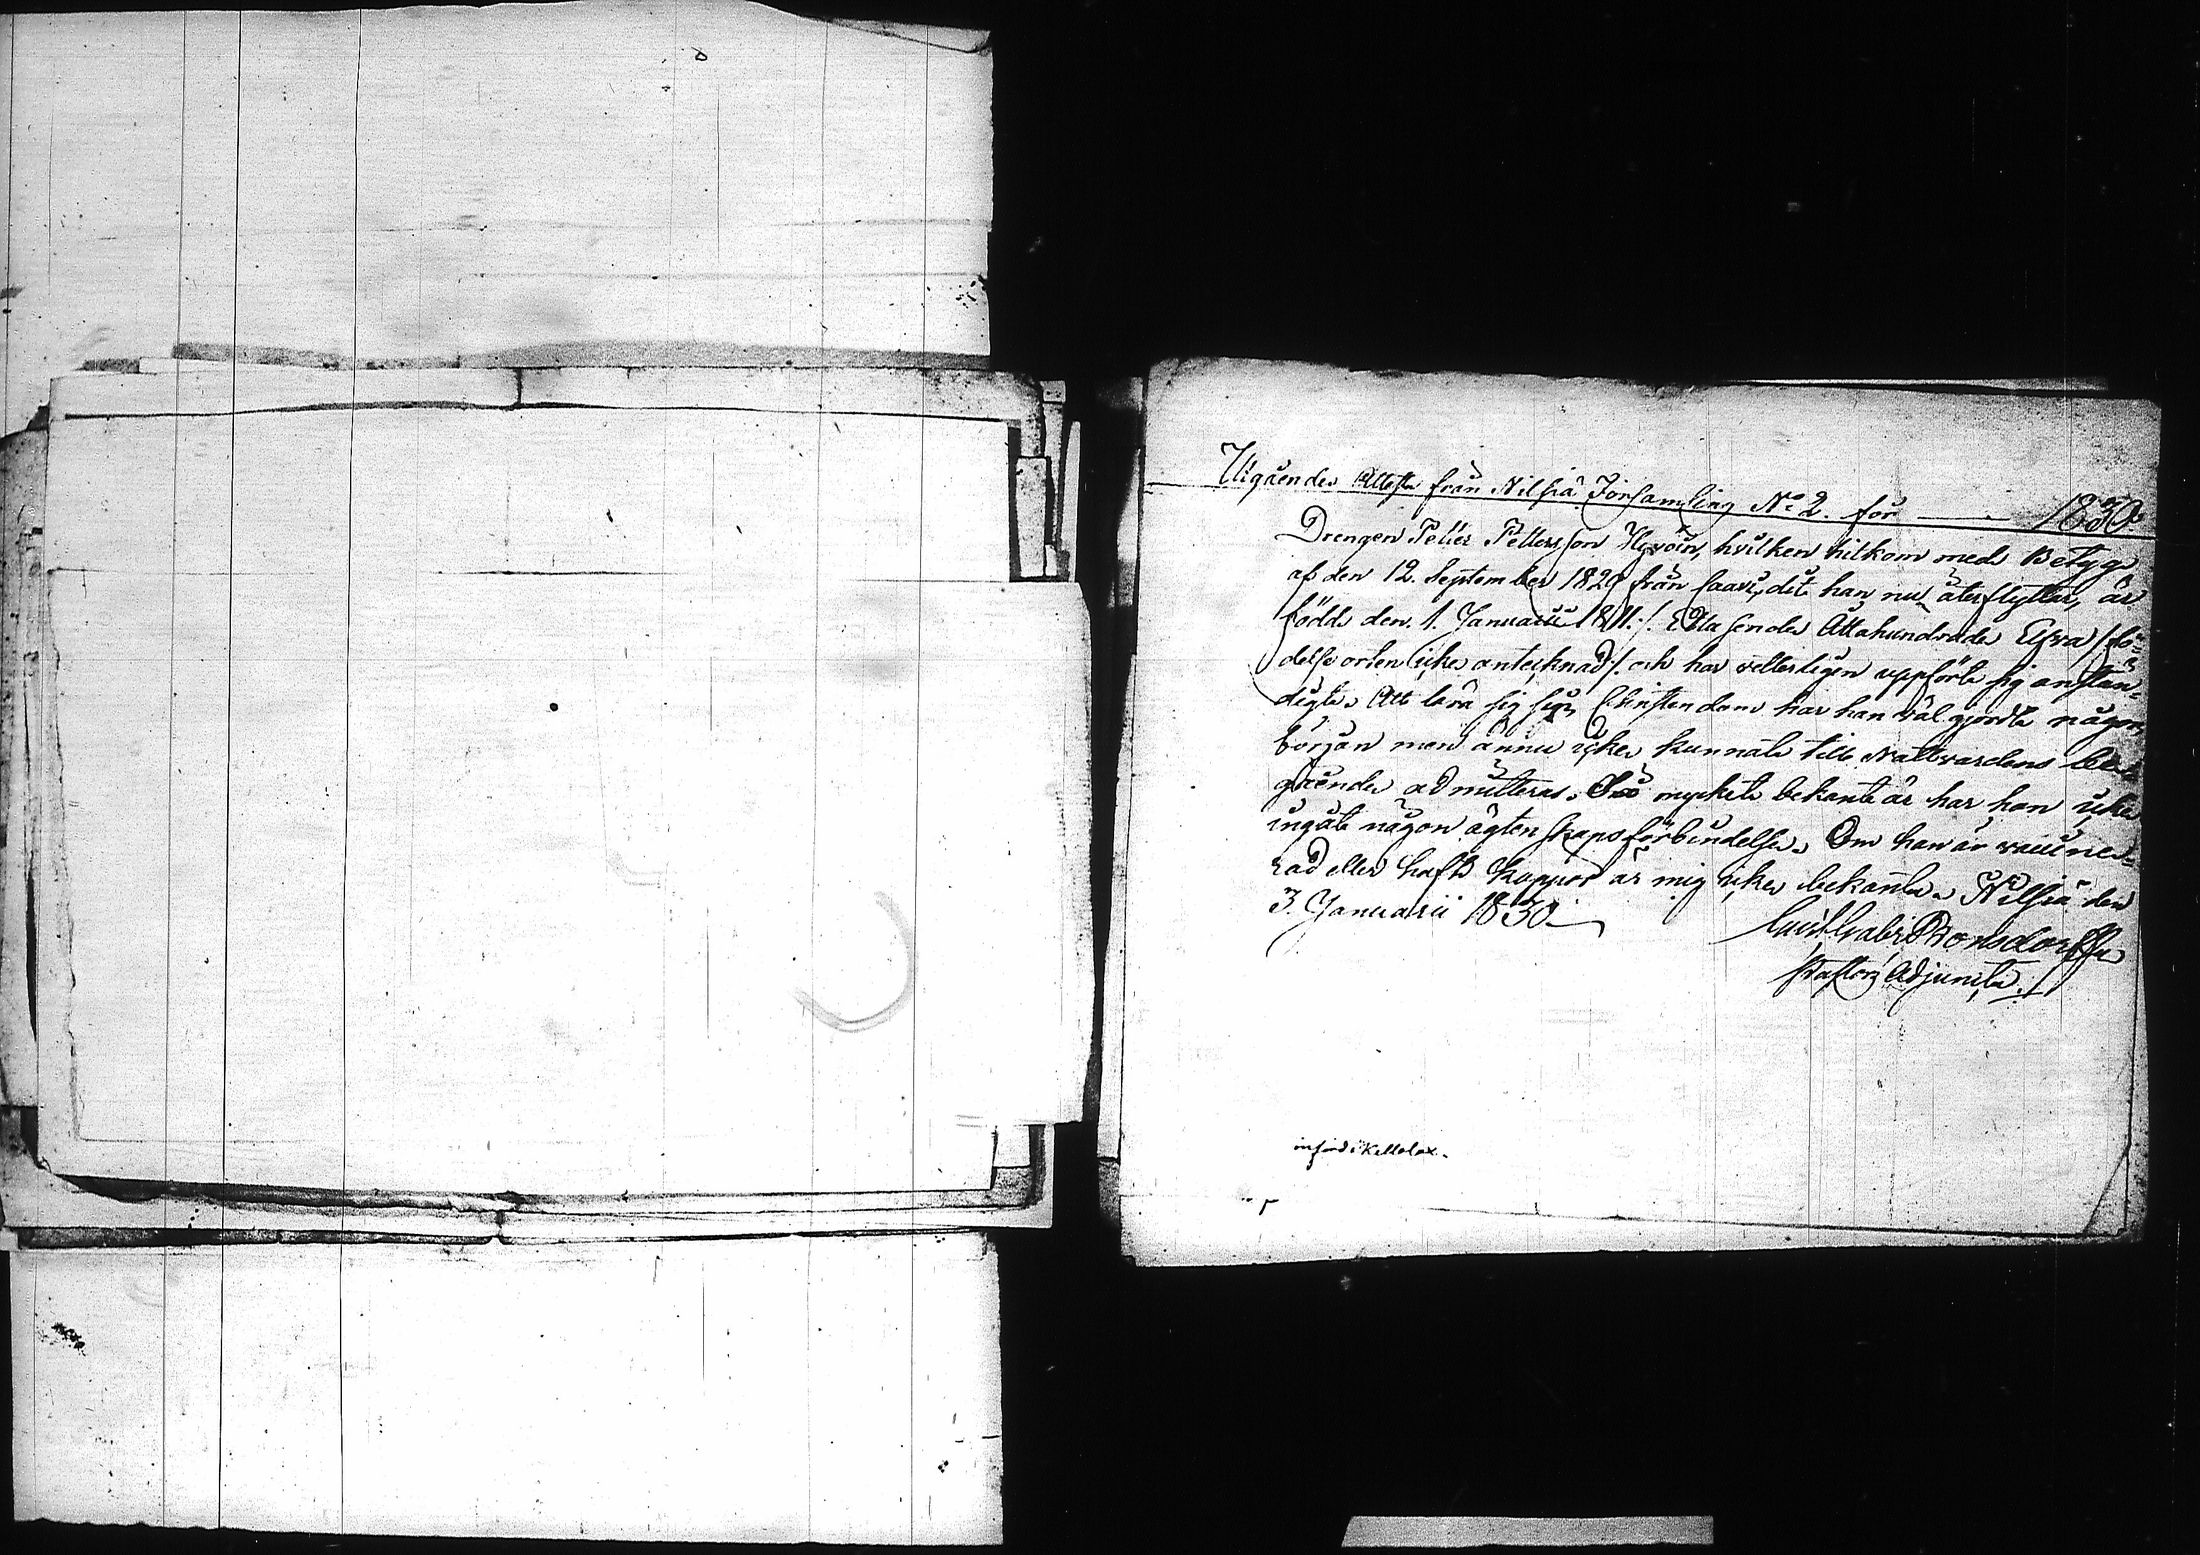 Utgående Attest från Nilsiä Församling N:o 2. för — 1830.
Drengen Petter Pettersson Hyvöin, hvilken hitkom med Betyg
af den 12. September 1829 från Caavi, dit han nu återflyttar, är
född den 1. Januarii 1811 /: Ettusende Åttahundrade Elfva /: fö-
delse orten icke antecknad :/ och har veterligen uppfört sig anstän-
digt. Att lära sig sin Christendom har han väl gjordt någon
början men ännu icke kunnat till Nattvardens be-
gående admitteras. Så mycket bekant är har han icke
ingått någon ägtenskapsförbindelse. Om han är vaccine-
rad eller haft koppor är mig icke bekant. Nilsiä den
3. Januarii 1830.
Gabr. Bonsdorff
Pastors Adjunct.
införd i Keltolax.